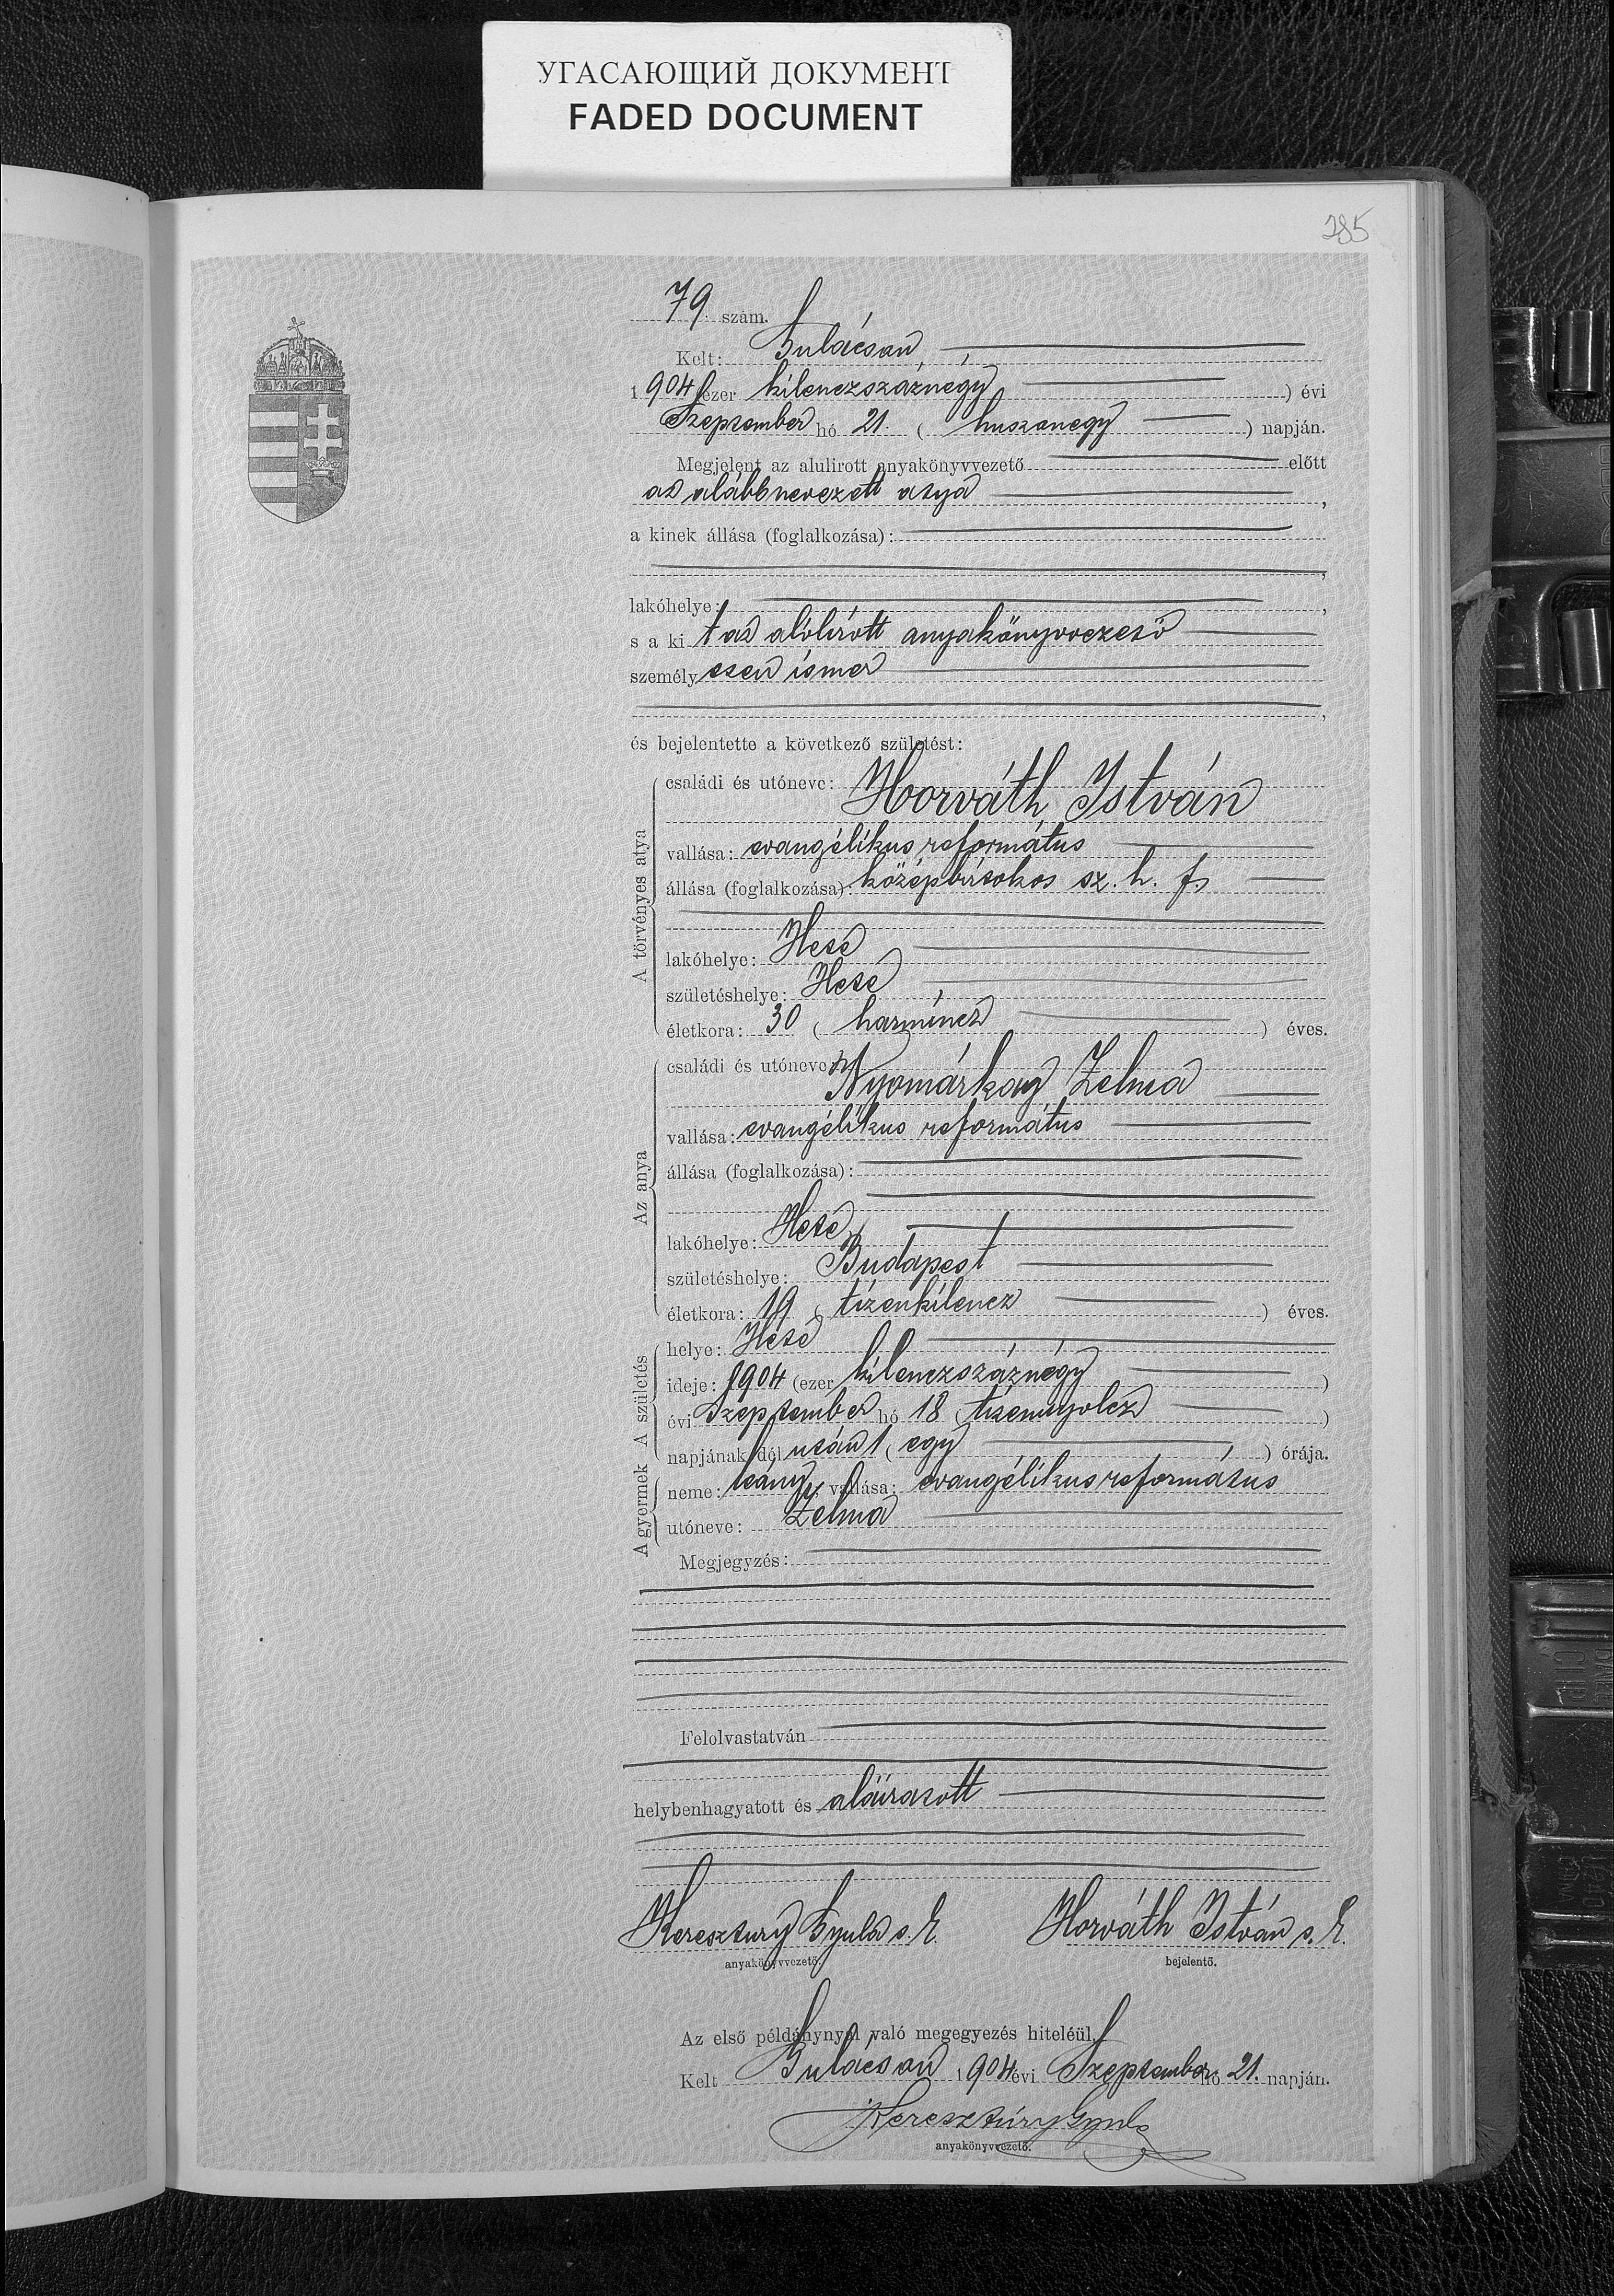 УГАСАЮЩИЙ ДОКУМЕНТ
FADED DOCUMENT
285
79. szám.
Kelt: Gulácson
1904 (ezer kilenczszáznégy ) évi
Szeptember hó 21. ( huszonegy ) napján.
Megjelent az alulirott anyakönyvvezető előtt
az alábbnevezett atya ,
a kinek állása (foglalkozása):
,
lakóhelye: ,
s a ki t az alólirott anyakönyvvezető
személy esen ismer
,
és bejelentette a következő születést:
A törvényes atya
családi és utóneve: Horváth István
vallása: evangélikus református
állása (foglalkozása): középbirtokos sz. h. f.
lakóhelye: Hete
születéshelye: Hete
életkora: 30 ( harmincz ) éves.
Az anya
családi és utóneve: Nyomárkay Zelma
vallása: evangélikus református
állása (foglalkozása):
lakóhelye: Hete
születéshelye: Budapest
életkora: 19 ( tizenkilencz ) éves.
A születés
helye: Hete
ideje: 1904 (ezer kilenczszáznégy )
évi Szeptember hó 18 ( tizennyolcz )
napjának dél után 1 ( egy ) órája.
A gyermek
neme: leány, vallása: evangélikus református
utóneve: Zelma
Megjegyzés:
Felolvastatván
helybenhagyatott és aláiratott
Keresztury Gyula s. k. Horváth István s. k.
anyakönyvvezető. bejelentő.
Az első példánynyal való megegyezés hiteléül.
Kelt Gulácson 1904 évi Szeptember hó 21. napján.
Keresztúry Gyula
anyakönyvvezető.